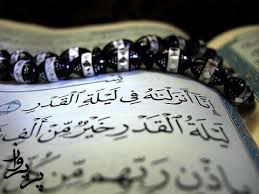 إِنَّا أَنزَلْنَاهُ فِي لَيْلَةِ الْقَدْرِ
لَيْلَةُ الْقَدْرِ خَيْرٌ مِّنْ أَلْفِ
بِإِذْنِ رَبِّهِم مِّن كُلِّ